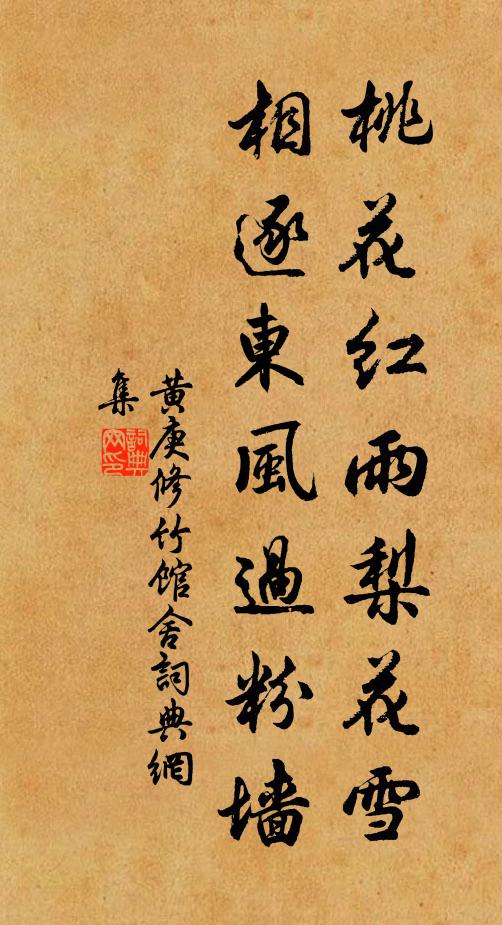 桃花紅雨梨花雪
相逐東風過粉墻
黄庚修竹館舍詞典網
集
詞典網印